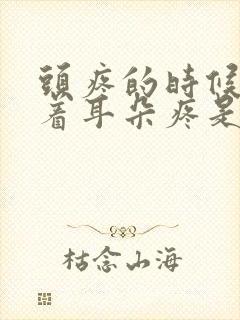 頭疼的時候
着耳朵疼是
枯念山海